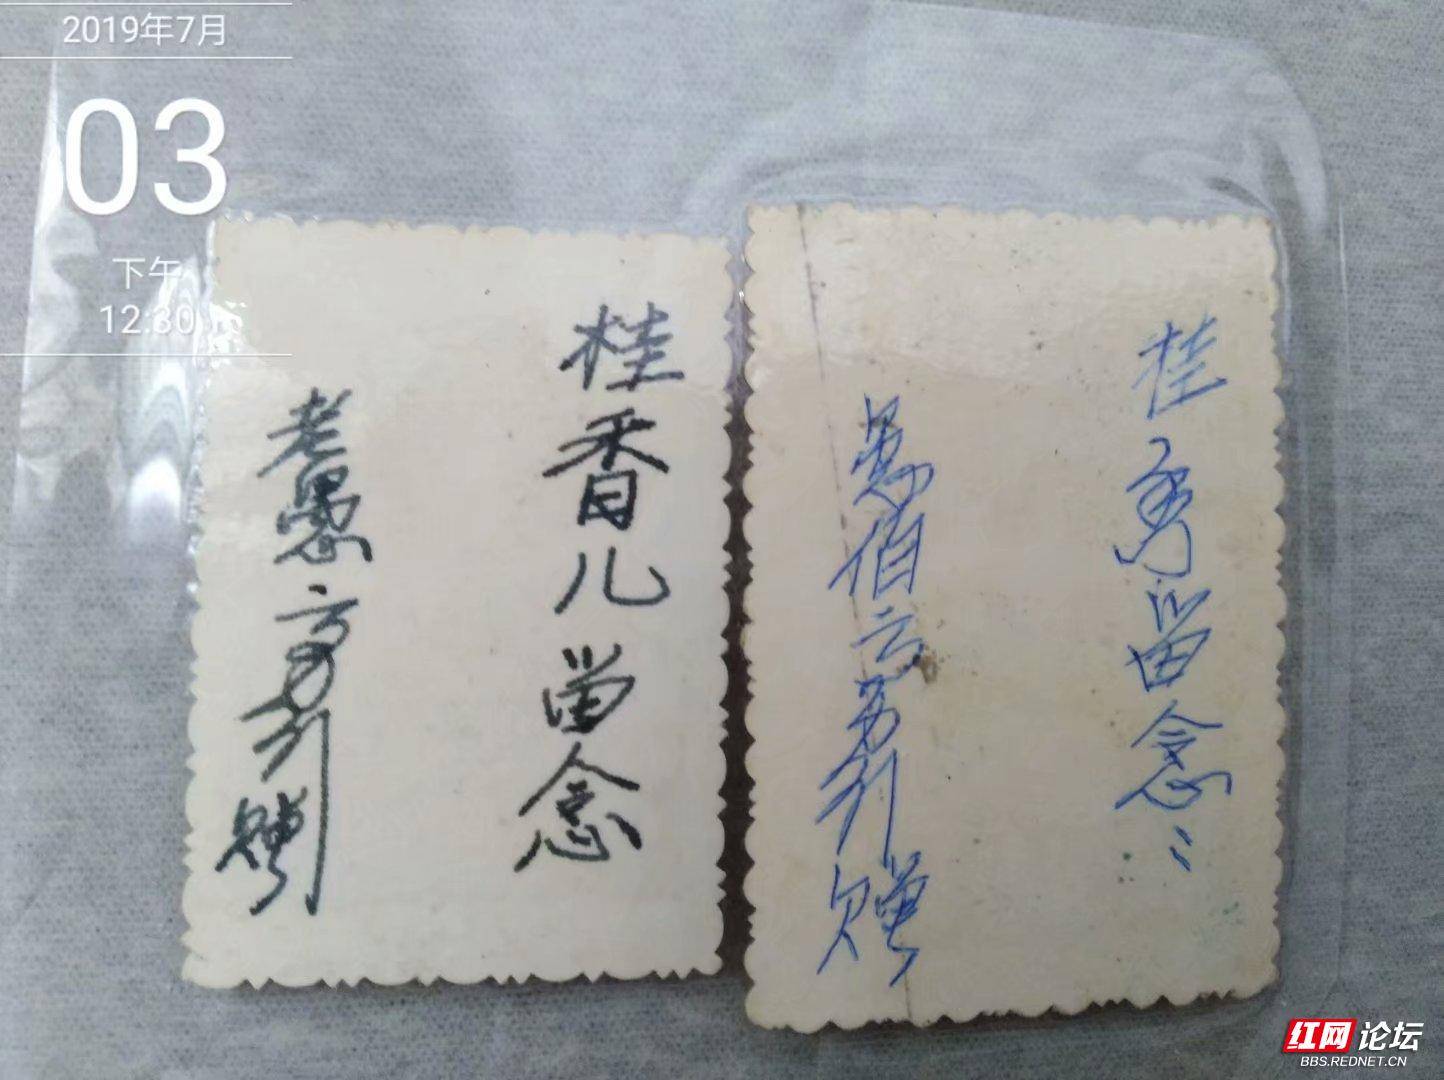 2019年7月
03
下午
12:30
桂香儿留念
老愚
赠
桂秀留念
愚伯云
赠
红网论坛
BBS.REDNET.CN